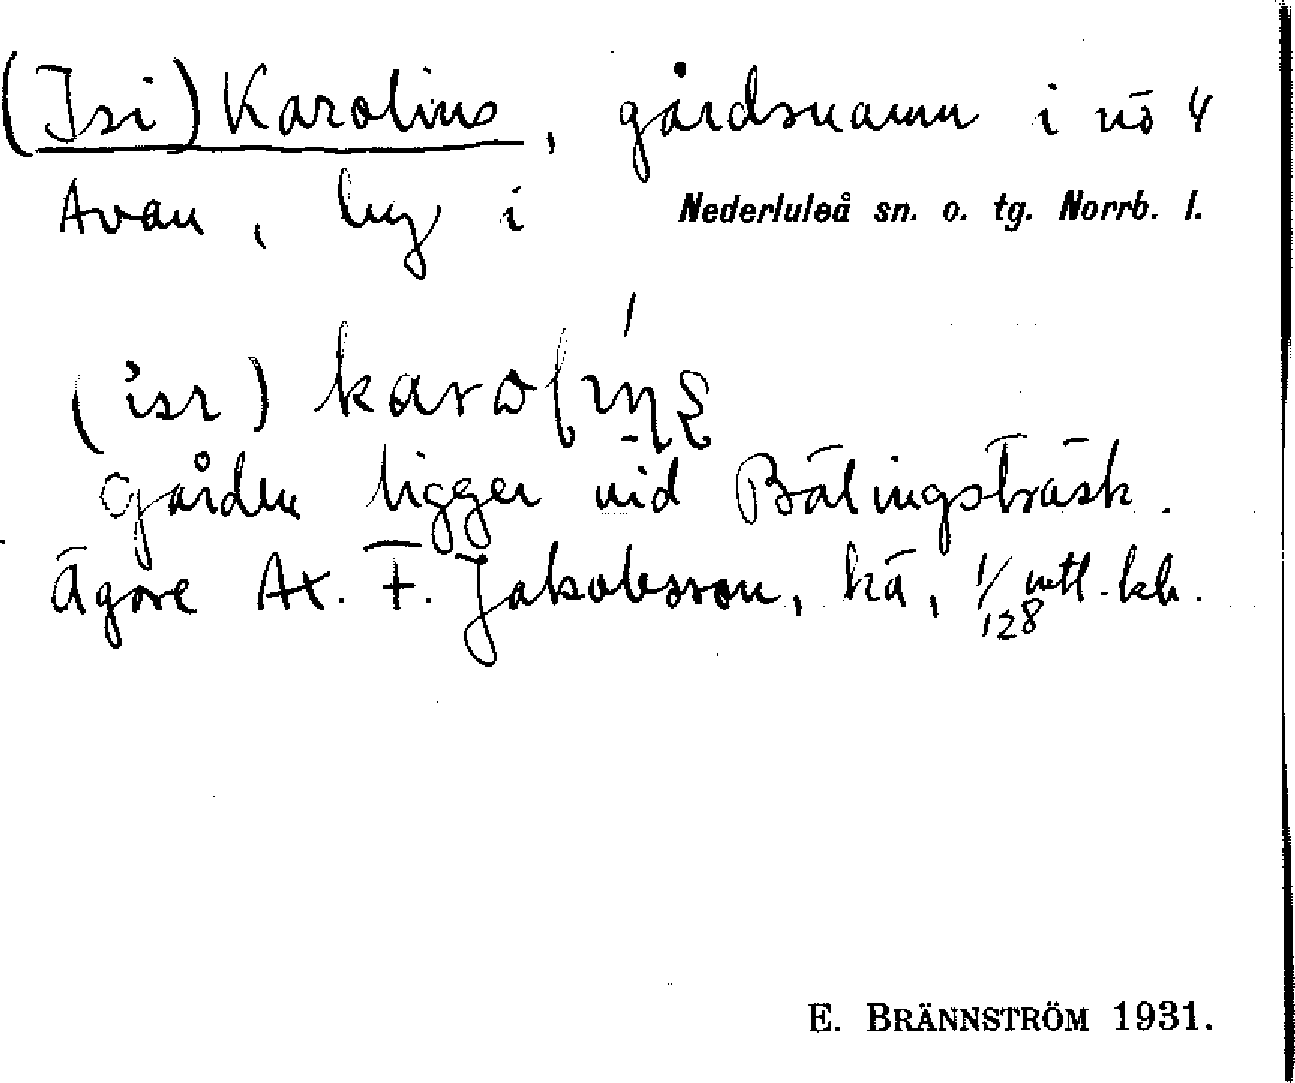 (Isi) Karolins, gårdsnamn i nö 4
Avan, by i Nederluleå sn. o. tg. Norrb. l.
Gården ligger vid Bälingsträsk.
Ägare Ax. F. Jakobsson, kä, 1/128 mtl. kh.
E. BRÄNNSTRÖM 1931.